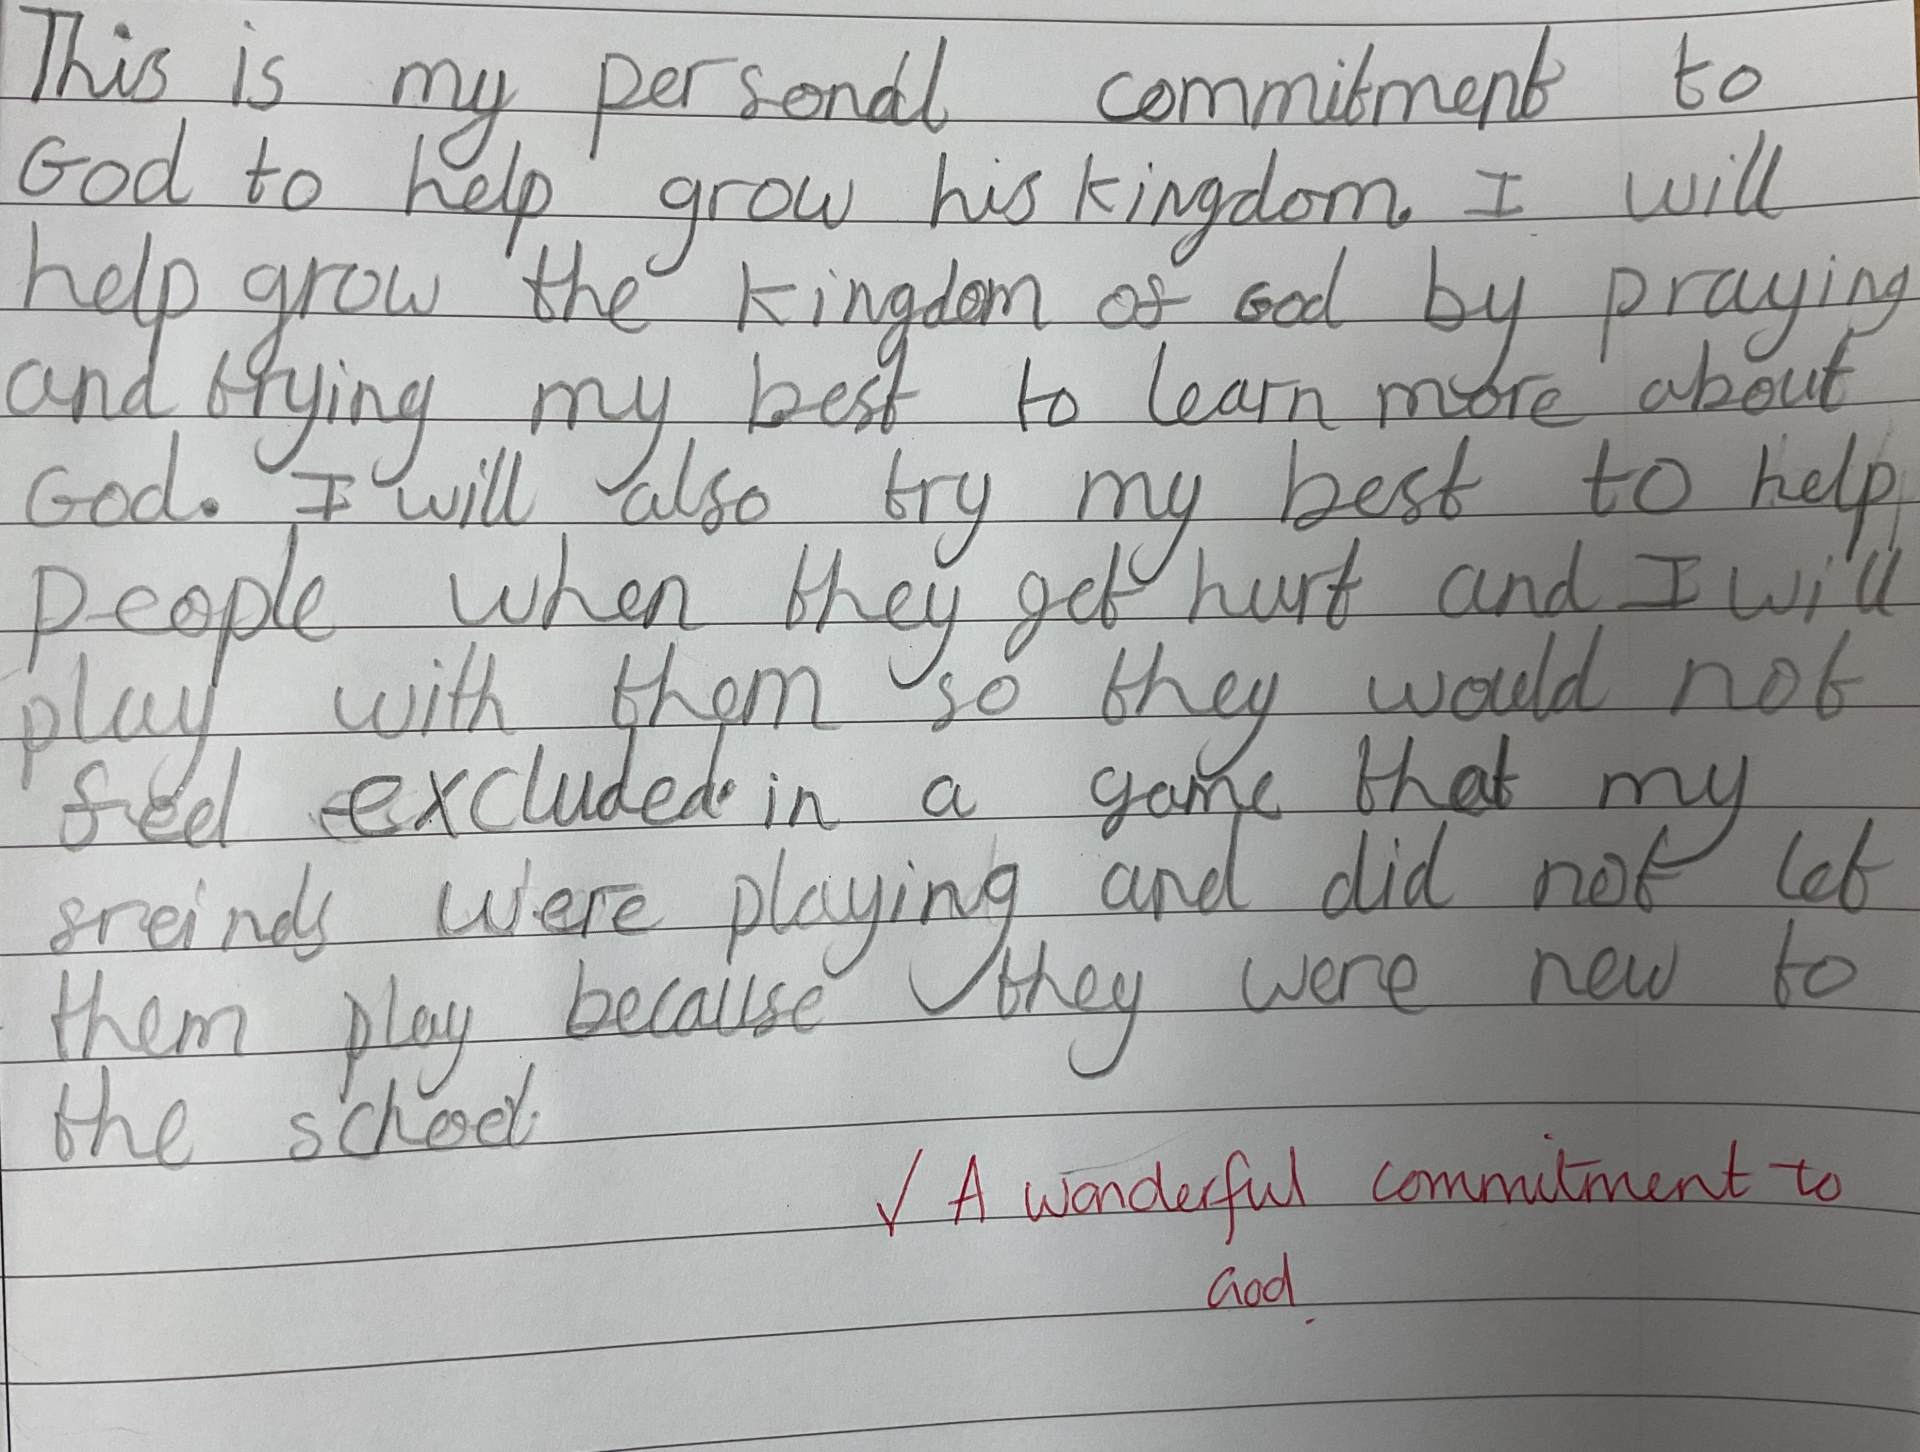 This is my personal commitment to
God to help grow his kingdom. I will
help grow the kingdom of God by praying
and trying my best to learn more about
God. I will also try my best to help
people when they get hurt and I will
play with them so they would not
feel excluded in a game that my
freinds were playing and did not let
them play because they were new to
the school.
✓ A wonderful commitment to
God.